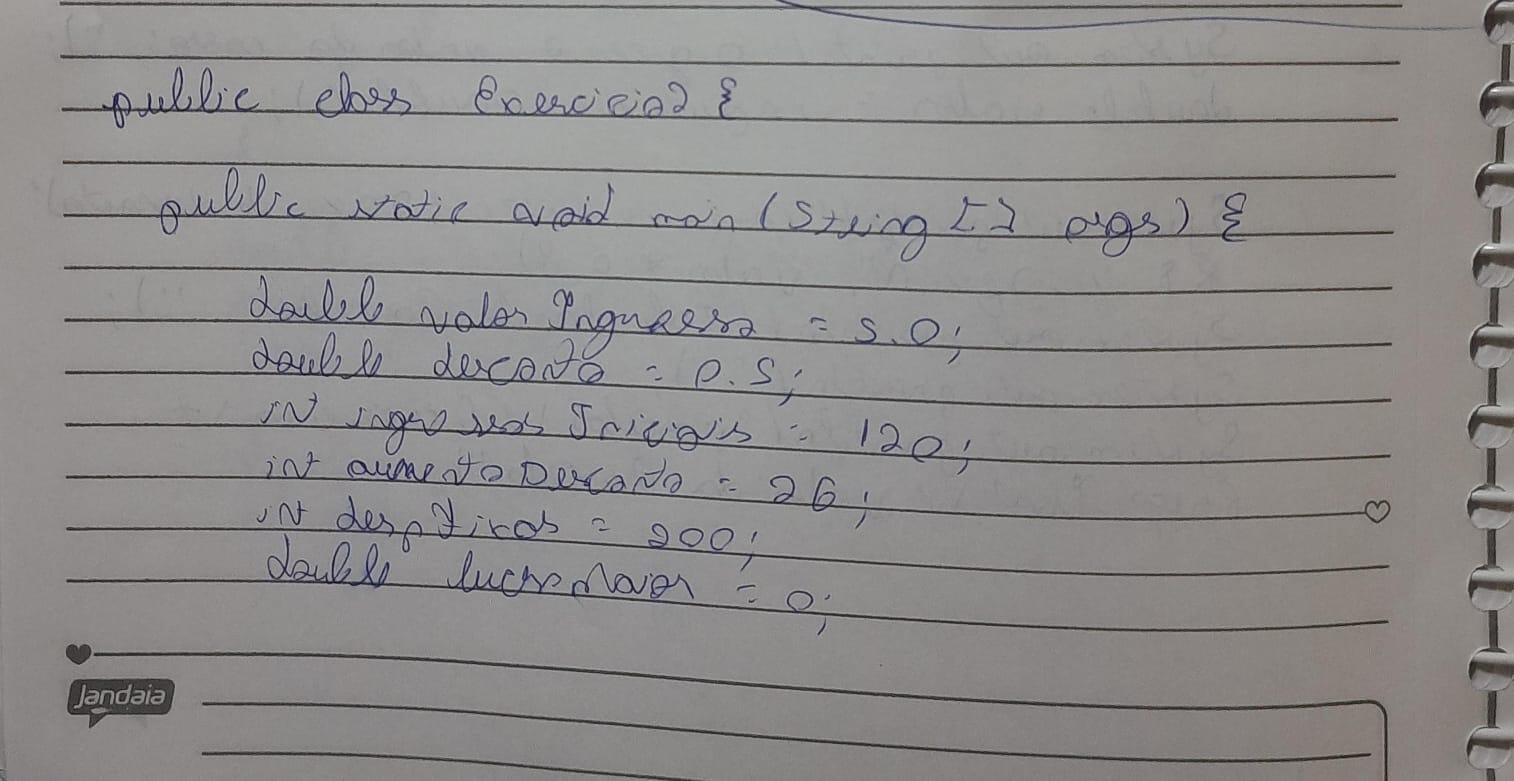 public class Exercicio2 {
public static void main (String [] args) {
double valor Ingresso = 5.0;
double desconto = 0.5;
int ingressos Iniciais = 120;
int aumento Desconto = 26;
int despesas = 200;
double lucro Maior = 0;
Jandaia